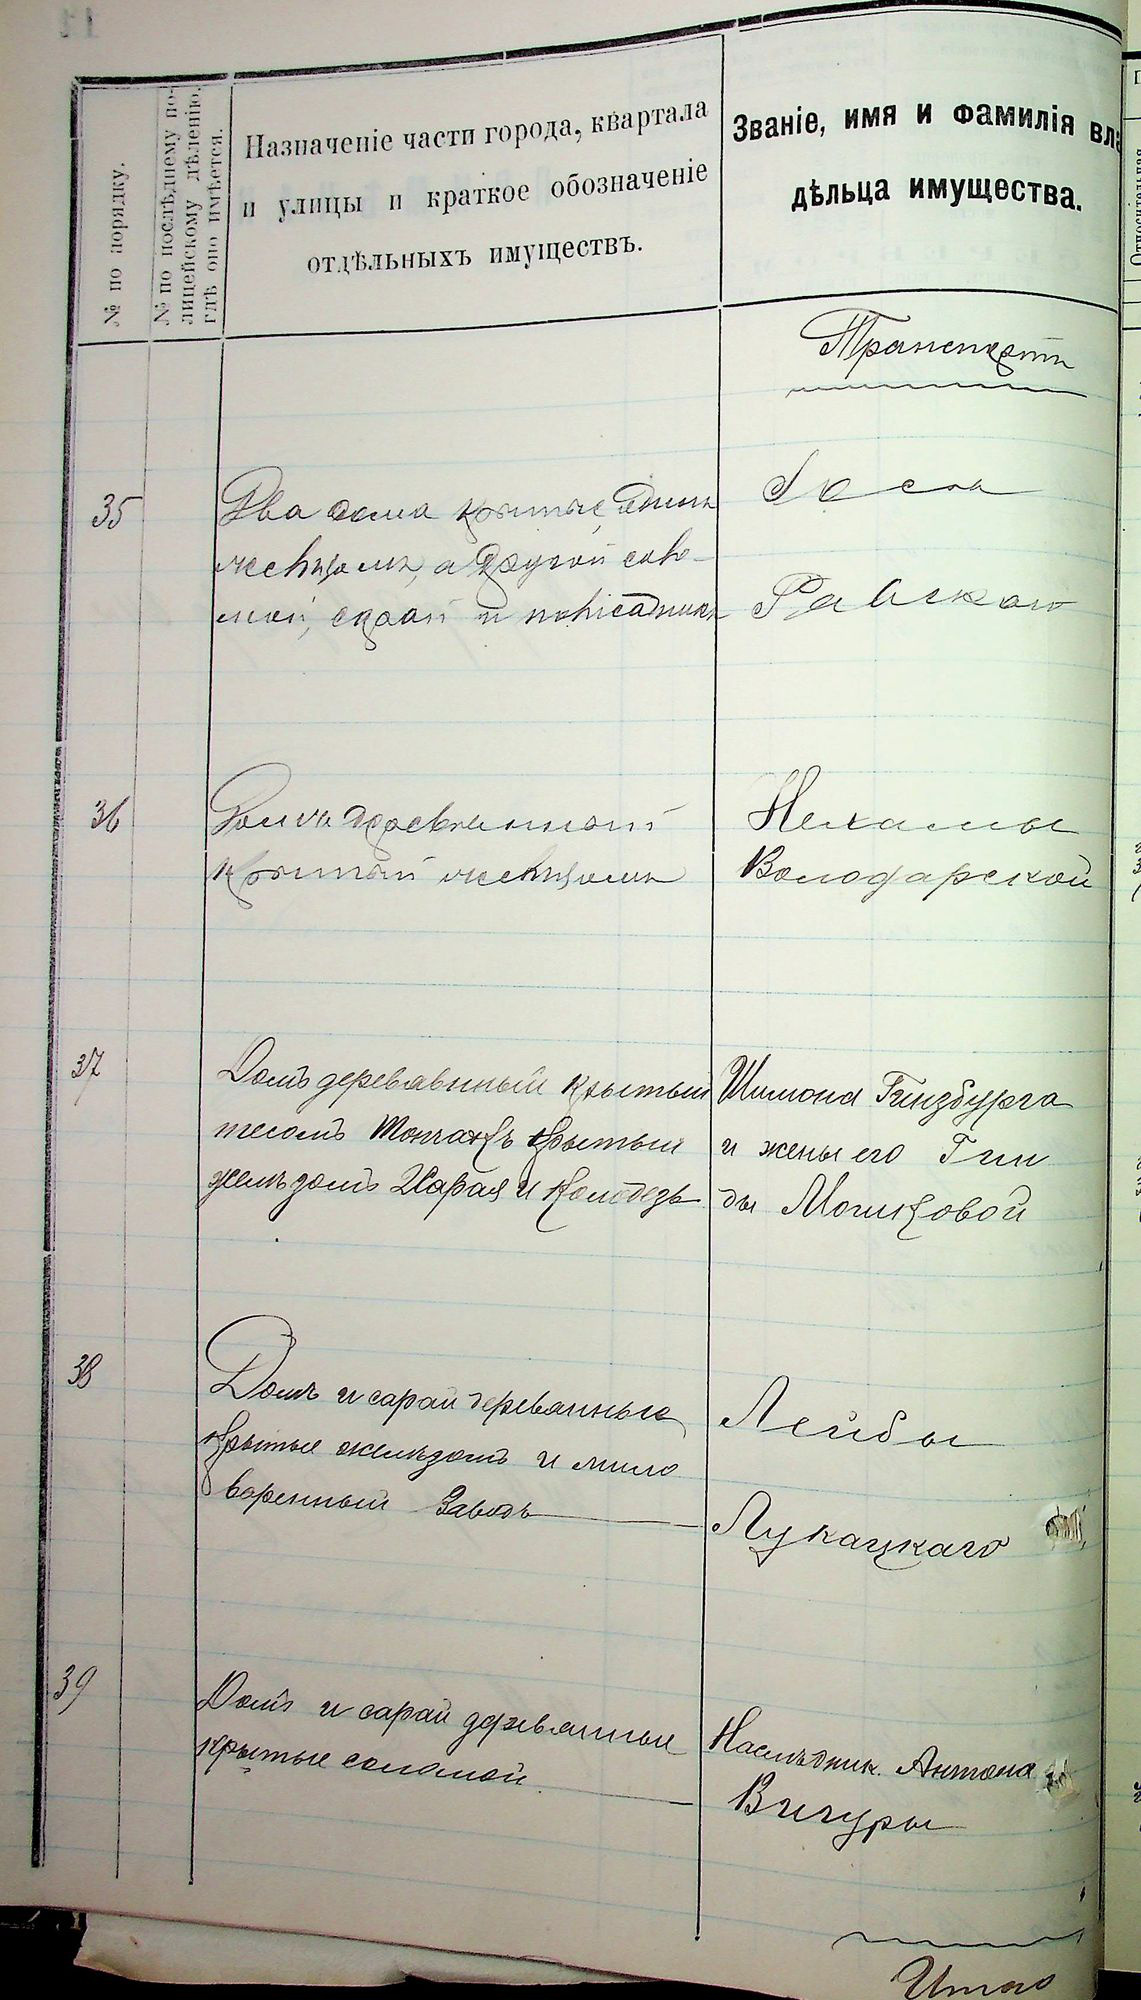 № по порядку.
№ по послѣднему по-
лицейскому дѣленію,
гдѣ оно имѣется.
Назначеніе части города, квартала
и улицы и краткое обозначеніе
отдѣльныхъ имуществъ.
Званіе, имя и фамилія вла
дѣльца имущества.
Транспортъ
35
Два дома крытые, одинъ
желѣзомъ, а другой соло-
мой, сарай и
Іоселя
Рабскаго
36
Домъ деревянный
крытый желѣзомъ
Нехамы
Володарской
37
Домъ деревянный крытый
тесомъ крытый
желѣзомъ 2 сарая и колодезь
Шимона Гинзбурга
и жены его Гин
ды
38
Домъ и сарай деревянные
крытые желѣзомъ и мыло
варенный заводъ
Лейбы
Лукацкаго
39
Домъ и сарай деревянные
крытые соломой
Наслѣдник. Антона
Вигуры
Итого